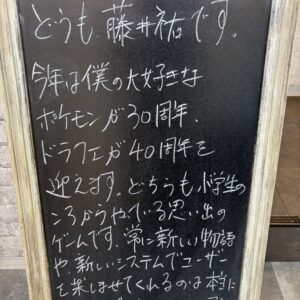 どうも、藤井祐です。
今年は僕の大好きな
ポケモンが30周年、
ドラクエが40周年を
迎えます。どちらも小学生の
ころからやっている思い出の
ゲームです。常に新しい物語
や、新しいシステムでユーザー
を楽しませてくれるのは本当に